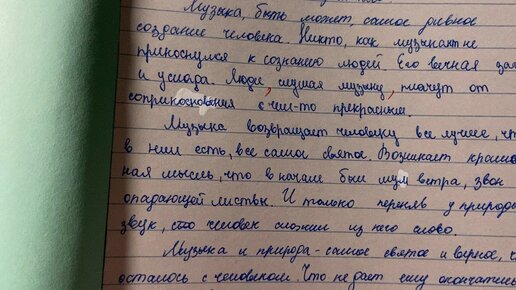 Музыка, быть может, самое дивное
создание человека. Никто, как музыкант не
прикоснулся к сознанию людей. Его вечная
и услада. Люди, слушая музыку, плачут от
соприкосновения с чем-то прекрасным.
Музыка возвращает человеку все лучшее, чт
в нем есть, все самое святое. Возникает
ная мысль, что в начале был шум ветра, звон
опадающей листвы. И только переняв у природы
звук, сто человек сложил из него слово.
Музыка и природа - самое святое и верное,
осталось с человеком. Что не дает ему окончательн